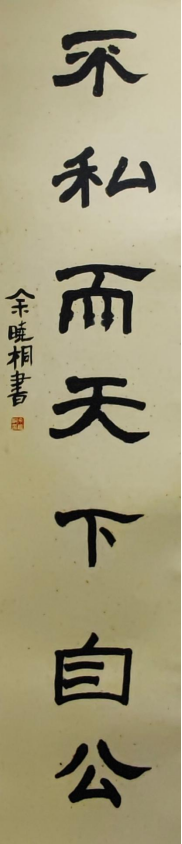 不私而天下自公
余曉桐書